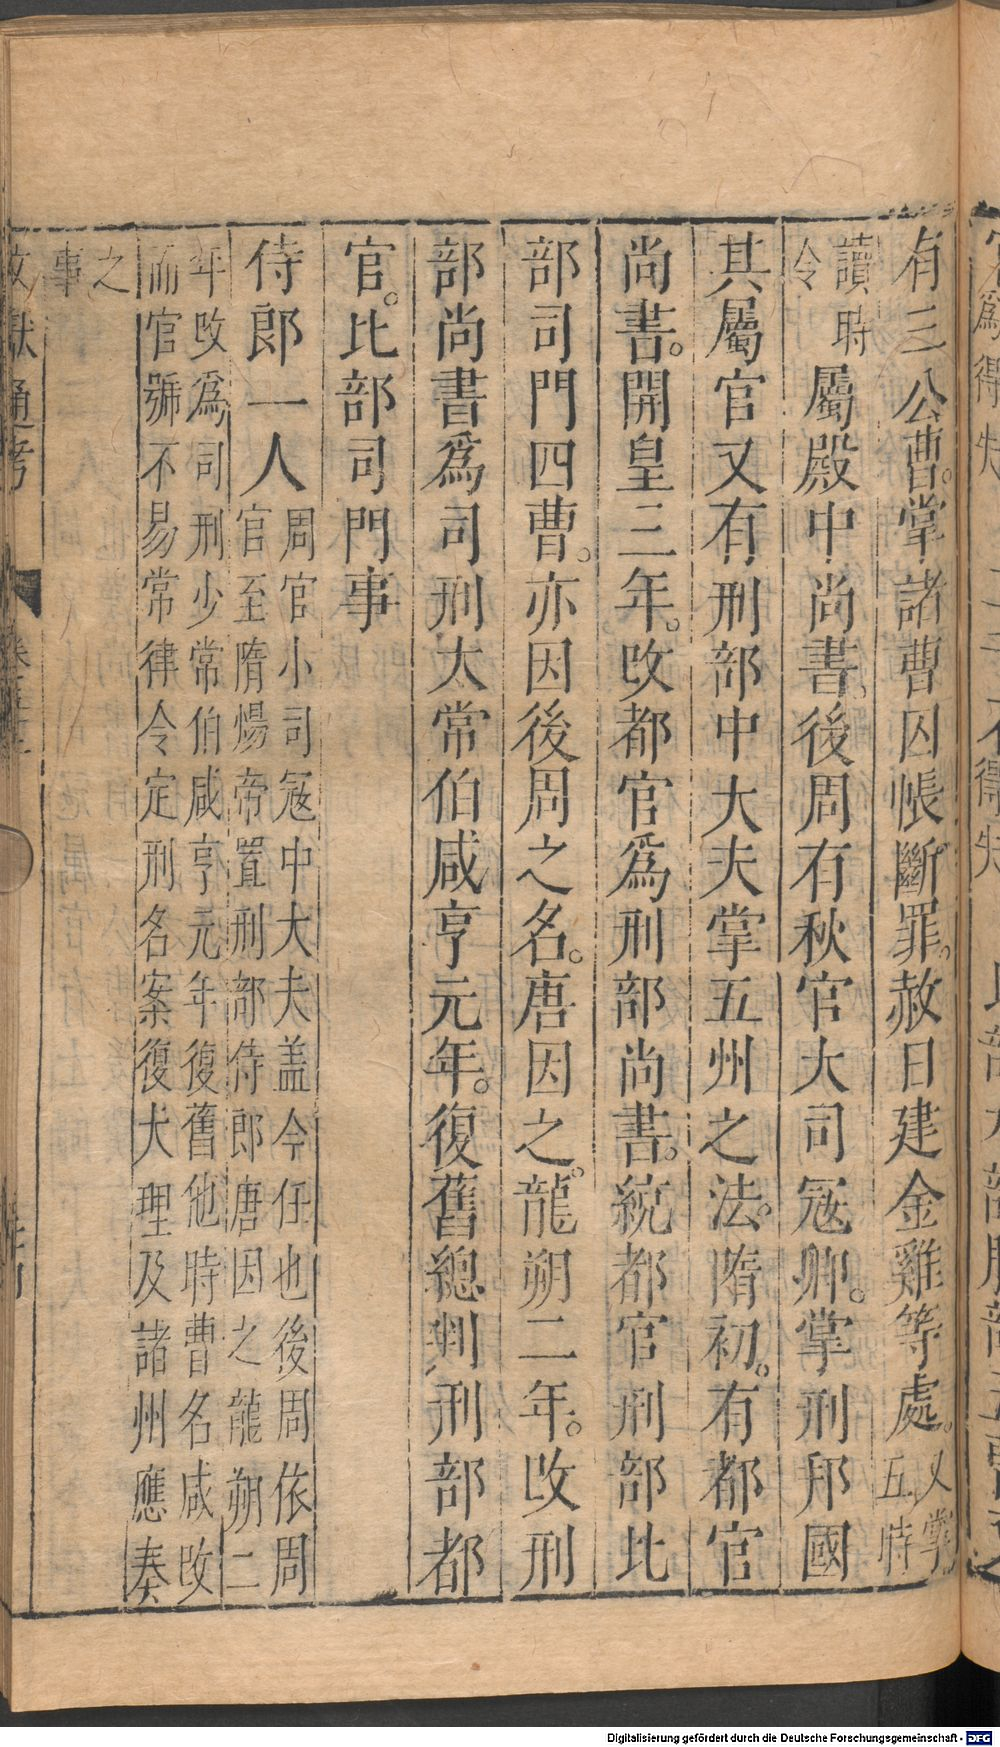 有三公曹。掌諸曹囚帳斷罪。赦日建金雞等處。又掌五時
讀時令屬殿中尚書。後周有秋官大司冦卿。掌刑邦國
其屬官又有刑部中大夫掌五州之法。隋初。有都官
尚書。開皇三年。改都官爲刑部尚書。統都官刑部比
部司門四曹。亦因後周之名。唐因之。龍朔二年。改刑
部尚書爲司刑太常伯咸亨元年。復舊總判刑部都
官。比部司門事
侍郎一人周官小司冦中大夫盖今任也後周依周
官至隋煬帝置刑部侍郎唐因之龍朔二
年改爲司刑少常伯咸亨元年復舊他時曹名咸改
而官號不易常律令定刑名案復大理及諸州應奏
之
事
文獻通考
Digitalisierung gefördert durch die Deutsche Forschungsgemeinschaft - DFG